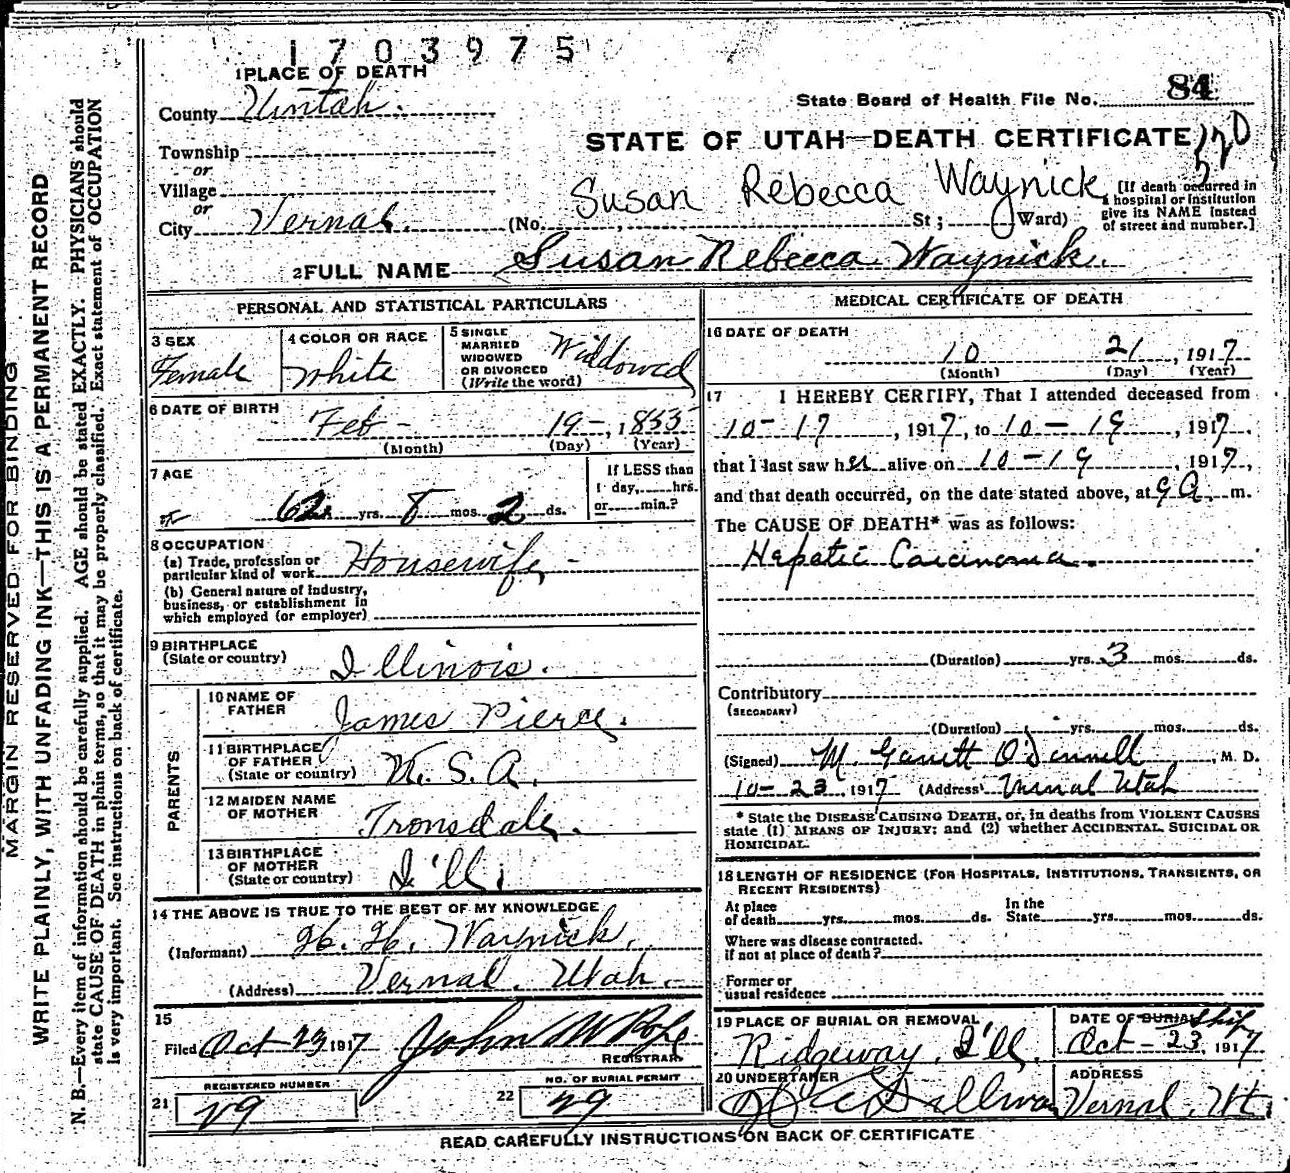 1703975
1 PLACE OF DEATH
County Uintah.
State Board of Health File No. 84
Township
or
STATE OF UTAH—DEATH CERTIFICATE
120
Village
or
City Vernal.
Susan Rebecca Waynick
(No. , St; Ward)
[If death occurred in
a hospital or institution
give its NAME instead
of street and number.]
2 FULL NAME Susan Rebecca Waynick.
PERSONAL AND STATISTICAL PARTICULARS
3 SEX
Female
4 COLOR OR RACE
White
5 SINGLE
MARRIED
WIDOWED
OR DIVORCED
(Write the word)
Widdowed
6 DATE OF BIRTH
Feb - 19-, 1855
(Month) (Day) (Year)
7 AGE
62 yrs. 8 mos. 2 ds.
If LESS than
1 day, hrs.
or min.?
8 OCCUPATION
(a) Trade, profession or
particular kind of work Housewife -
(b) General nature of Industry,
business, or establishment in
which employed (or employer)
9 BIRTHPLACE
(State or country) Illinois.
PARENTS
10 NAME OF
FATHER James Pierce.
11 BIRTHPLACE
OF FATHER
(State or country) U.S.A.
12 MAIDEN NAME
OF MOTHER Tronsdale.
13 BIRTHPLACE
OF MOTHER
(State or country) I'll.
14 THE ABOVE IS TRUE TO THE BEST OF MY KNOWLEDGE
(Informant) H. H. Waynick.
(Address) Vernal, Utah.
15
Filed Oct 23 1917 John W Pope
REGISTRAR
REGISTERED NUMBER
21 29
NO. OF BURIAL PERMIT
22 29
MEDICAL CERTIFICATE OF DEATH
16 DATE OF DEATH
10 21, 1917
(Month) (Day) (Year)
17 I HEREBY CERTIFY, That I attended deceased from
10-17, 1917, to 10-19, 1917,
that I last saw her alive on 10-19, 1917,
and that death occurred, on the date stated above, at 9 A. m.
The CAUSE OF DEATH* was as follows:
Hepatic Carcinoma.
(Duration) yrs. 3 mos. ds.
Contributory
(SECONDARY)
(Duration) yrs. mos. ds.
(Signed) M. Garrett O'Donnell, M. D.
10-23, 1917 (Address) Vernal Utah
* State the DISEASE CAUSING DEATH, or, in deaths from VIOLENT CAUSES
state (1) MEANS OF INJURY; and (2) whether ACCIDENTAL, SUICIDAL OR
HOMICIDAL.
18 LENGTH OF RESIDENCE (FOR HOSPITALS, INSTITUTIONS, TRANSIENTS, OR
RECENT RESIDENTS)
At place
of death yrs. mos. ds.
In the
State yrs. mos. ds.
Where was disease contracted.
if not at place of death?
Former or
usual residence
19 PLACE OF BURIAL OR REMOVAL
Ridgeway, I'll.
DATE OF BURIAL Ship
Oct-23, 1917
20 UNDERTAKER
ADDRESS
Vernal, Ut.
READ CAREFULLY INSTRUCTIONS ON BACK OF CERTIFICATE
MARGIN RESERVED FOR BINDING
WRITE PLAINLY, WITH UNFADING INK—THIS IS A PERMANENT RECORD
N. B.—Every item of information should be carefully supplied. AGE should be stated EXACTLY. PHYSICIANS should
state CAUSE OF DEATH in plain terms, so that it may be properly classified. Exact statement of OCCUPATION
is very important. See instructions on back of certificate.